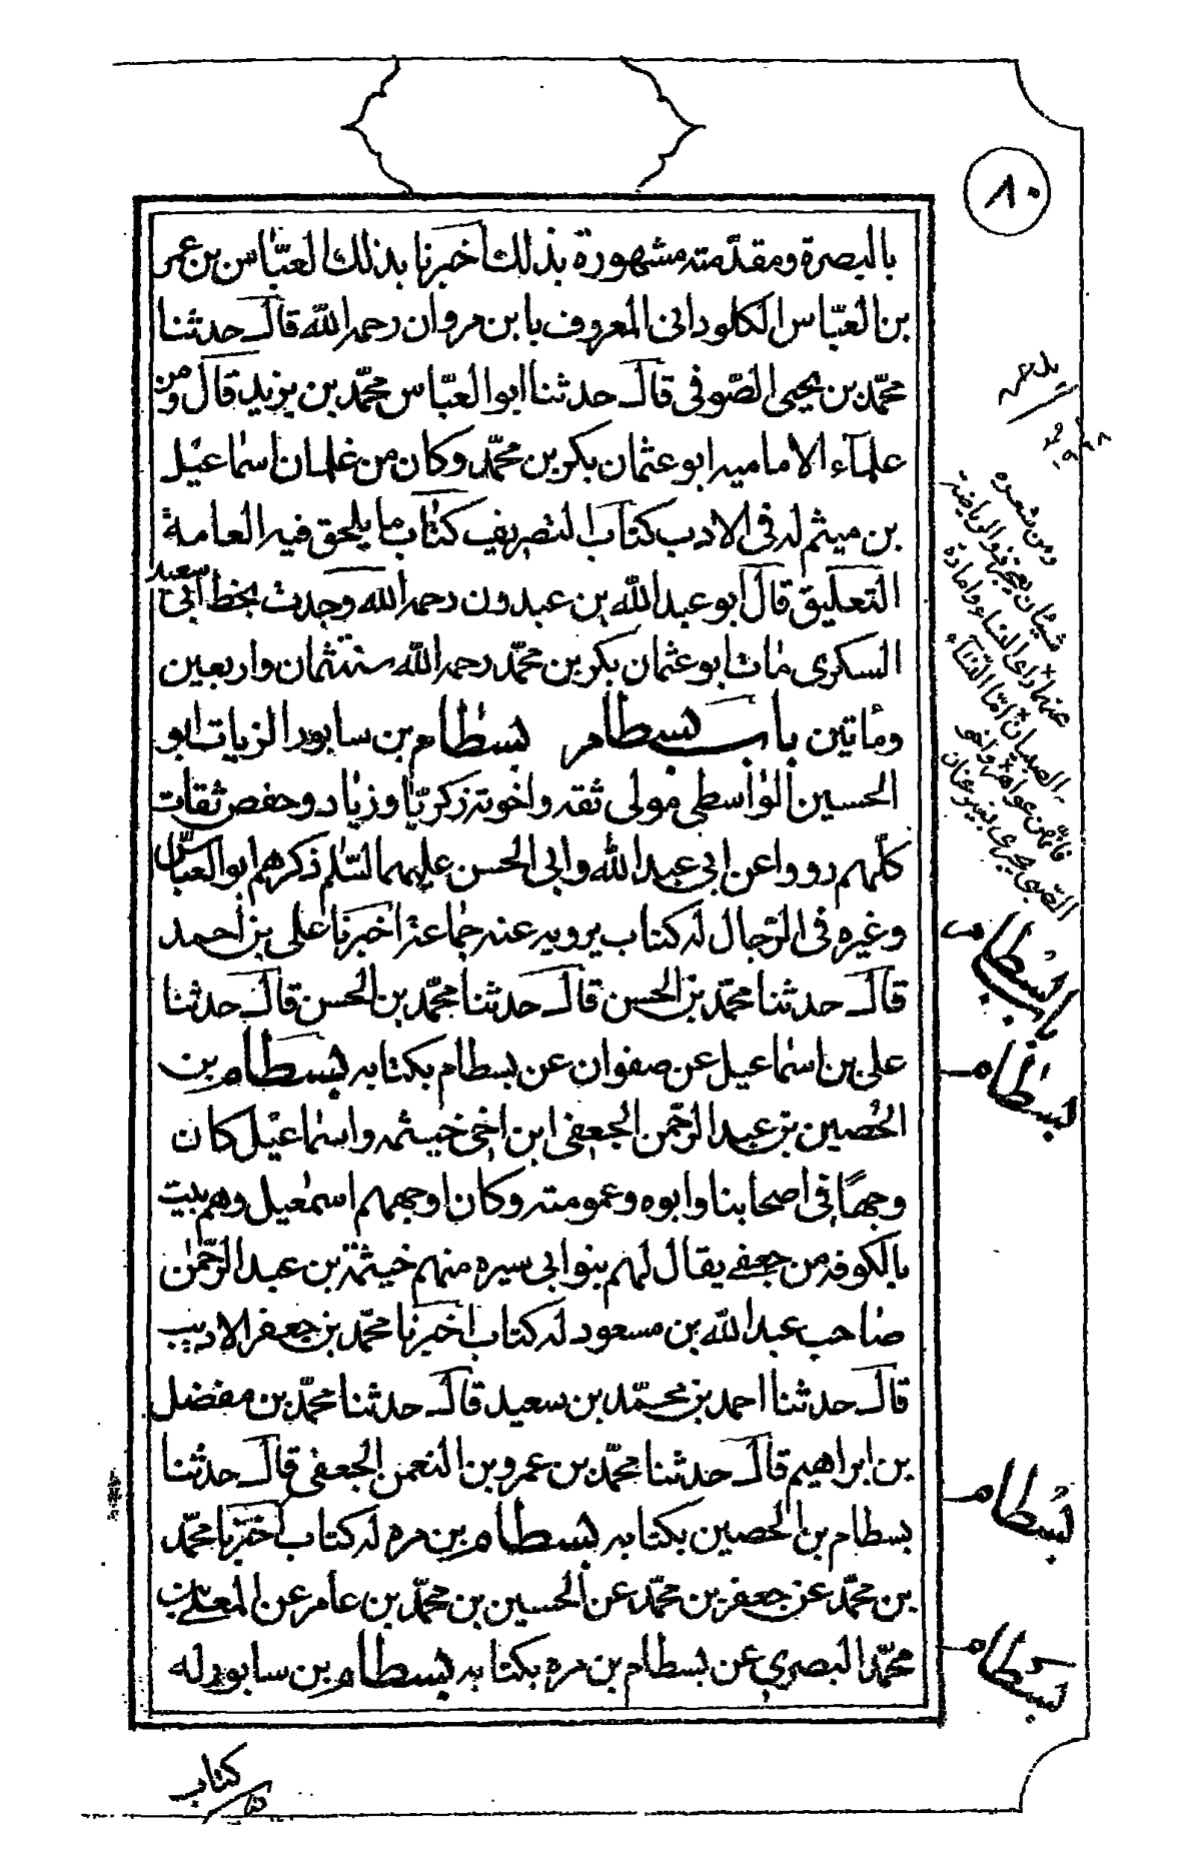 ٨٠
بالبصرة ومقدّمته مشهورة بذلك اخبرنا بذلك العبّاس بن عمر
بن العبّاس الكلوذاني المعروف بابن مروان رحمه الله قال حدثنا
محمّد بن يحيى الصّوفي قال حدثنا ابو العبّاس محمّد بن يزيد قال ومن
علمآء الاماميه ابو عثمان بكر بن محمّد وكان من غلمان اسماعيل
بن ميثم له في الادب كتاب التصريف كتاب ما يلحق فيه العامة
التعليق قال ابو عبد الله بن عبدون رحمه الله وجدت بخط ابي سعيد
السكرى مات ابو عثمان بكر بن محمّد رحمه الله سنة ثمان واربعين
ومأتين باب بسطام بسطام بن سابور الزيات ابو
الحسين الواسطي مولى ثقه واخوته زكريّا وزياد وحفص ثقات
كلّهم رووا عن ابي عبد الله وابي الحسن عليهما السّلام ذكرهم ابو العبّاس
وغيره في الرّجال له كتاب يرويه عنه جماعة اخبرنا علي بن أحمد
قال حدثنا محمّد بن الحسن قال حدثنا محمّد بن الحسن قال حدثنا
علي بن اسماعيل عن صفوان عن بسطام بكتابه بسطام بن
الحُصين بن عبد الرّحمن الجعفي ابن اخي خيثمه واسماعيل كان
وجهًا في اصحابنا وابوه وعمومته وكان اوجههم اسمعيل وهم بيت
بالكوفه من جعفي يقال لهم بنو ابي سبره منهم خيثمة بن عبد الرّحمن
صاحب عبد الله بن مسعود له كتاب اخبرنا محمّد بن جعفر الاديب
قال حدثنا احمد بن محمّد بن سعيد قال حدثنا محمّد بن مفضل
بن ابراهيم قال حدثنا محمّد بن عمرو بن النعمن الجعفي قال حدثنا
بسطام بن الحصين بكتابه بسطام بن مره له كتاب اخبرنا محمّد
بن محمّد عن جعفر بن محمّد عن الحسين بن محمّد بن عامر عن المعلّى بن
محمّد البصري عن بسطام بن مره بكتابه بسطام بن سابور له
كتاب
ومن شعره
شيئان يعجز ذو الرياضة
عنهما رأى النساء وامارة
الصبيان امّا النسآء
الصّبي يجري بغير عنان
باب بسطام
بسطام
بسطام
بسطام